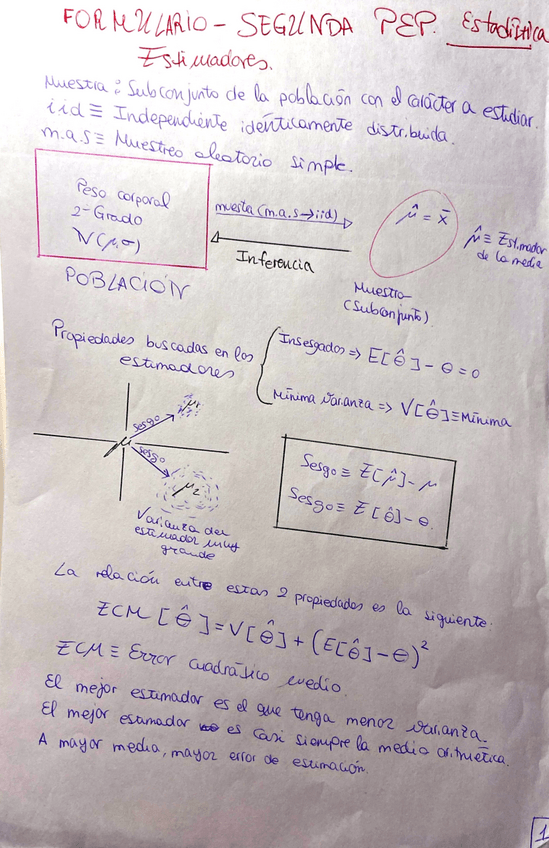 FORMULARIO - SEGUNDA PEP. Estadística
Estimadores.
Muestra: Subconjunto de la población con el carácter a estudiar.
iid ≡ Independiente idénticamente distribuida.
m.a.s ≡ Muestreo aleatorio simple.
Peso corporal
2º Grado
N(μ,σ)
POBLACIÓN
muestra (m.a.s → iid)
Inferencia
μ̂ = x̄
μ̂ ≡ Estimador
de la media
Muestra
(Subconjunto).
Propiedades buscadas en los
estimadores
Insesgados => E[θ̂] - θ = 0
Mínima varianza => V[θ̂] ≡ Mínima
μ
Sesgo
μ₁
Sesgo
μ₂
Varianza del
estimador muy
grande
Sesgo ≡ E[μ̂] - μ
Sesgo ≡ E[θ̂] - θ.
La relación entre estas 2 propiedades es la siguiente:
ECM[θ̂] = V[θ̂] + (E[θ̂] - θ)²
ECM ≡ Error cuadrático medio.
El mejor estimador es el que tenga menor varianza.
El mejor estimador es casi siempre la media aritmética.
A mayor media, mayor error de estimación.
1